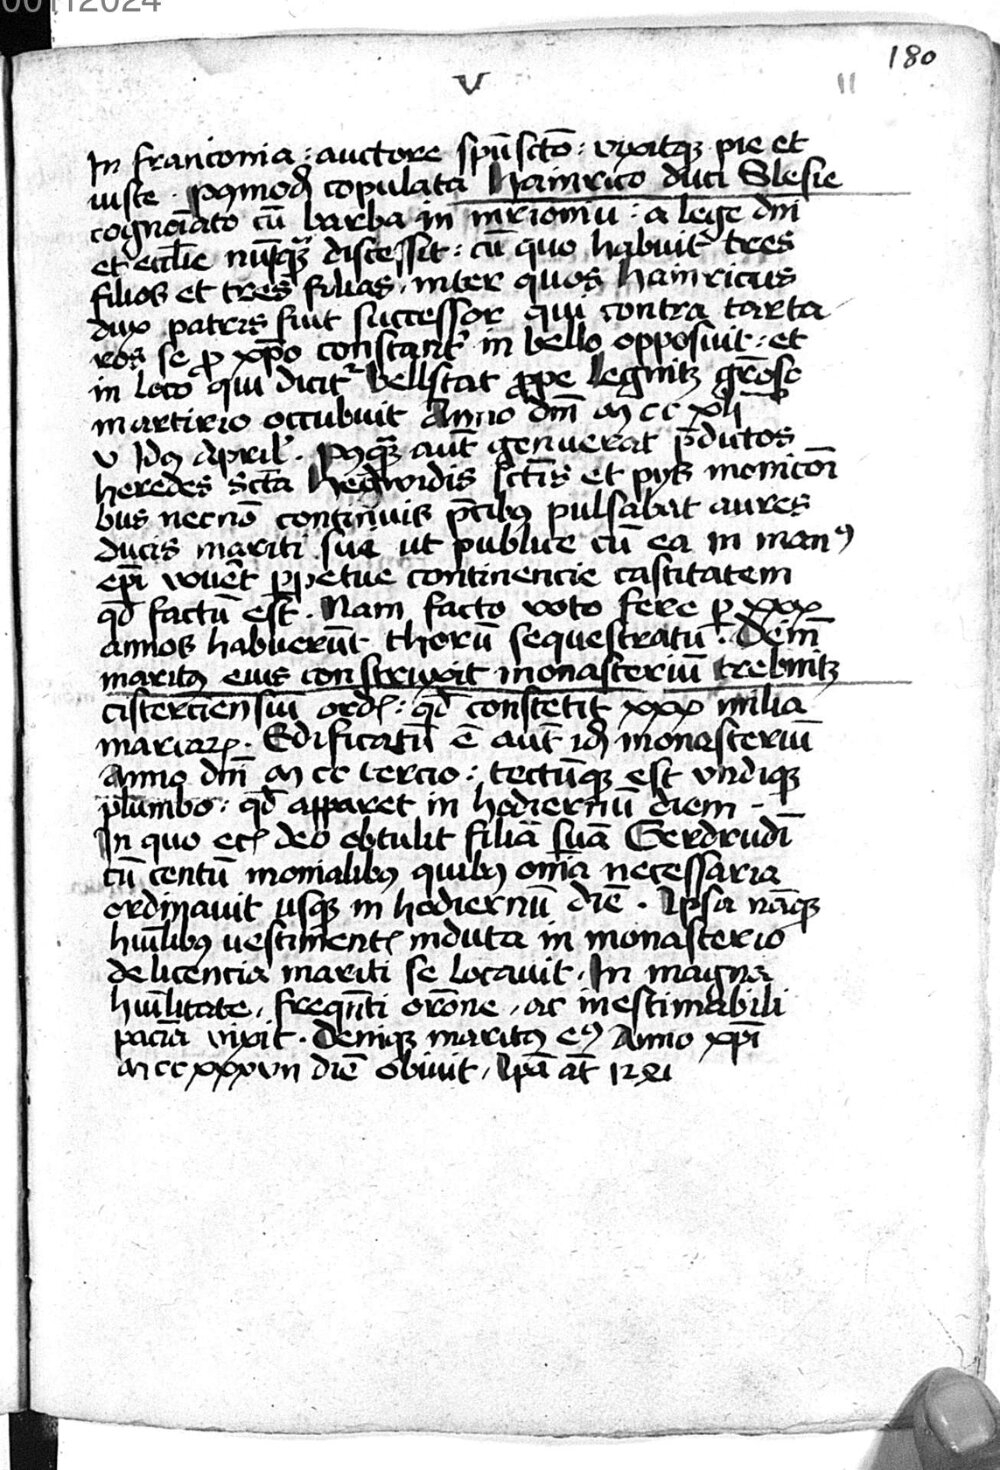 00112024
180
V
11
In franconia : auctore spū sctō : vixitqȝ pie et
iuste . Pꝰmodū copulata Hainrico duci Slesie
cognoīato cū barba in mrīoniū : a lege dni
et eccl̄ie nūsqȝ discessit : cū quo habuit tres
filios et tres filias . inter quos Hainricus
dux patris fuit successor qui contra tarta
ros se ꝓ xp̄o constant᷑ in bello opposuit : et
in loco qui dicit᷑ Vellstat ꝓpe Legnitz gr̄ose
martirio occubuit Anno dn̄i M cc xli
v Idꝰ April᷑ . Pꝰqȝ aut̄ genuerat p̄dictos
heredes Sct̄a Hedwidis sct̄is et pijs monicōi
bus necnō continuis p̄cibꝰ pulsabat aures
ducis mariti sui ut publice cū ea in manꝰ
ep̄i voue᷑t ꝑpetue continencie castitatem
qd̄ factū est . Nam facto voto fere ꝑ xxx
annos habuerūt thorū sequestratū . Deīn
maritꝰ eius construxit monasteriū trebnitz
cisterciensiū ord᷑ : qd̄ constetit xxx milia
marcarꝝ . Edificatū ē aut̄ idē monasteriū
Anno dn̄i M cc tercio : tectūqȝ est vndiqȝ
plumbo : qd̄ apparet in hodiernū diem .
In quo ecī deo obtulit filiā suā Gerdrudī
cū centū monialibꝰ quibꝰ om̄ia necessaria
ordinauit usqȝ in hodiernū diē . Ipsa nāqȝ
hūilibꝰ uestiment᷑ induta in monasterio
de licencia mariti se locauit . In magna
hūilitate , freqn̄ti orōne , ac inestimabili
pacīa vixit . Deniqȝ maritꝰ eꝰ Anno xp̄i
M cc xxxvii diē obiuit , Ip̄a at̄